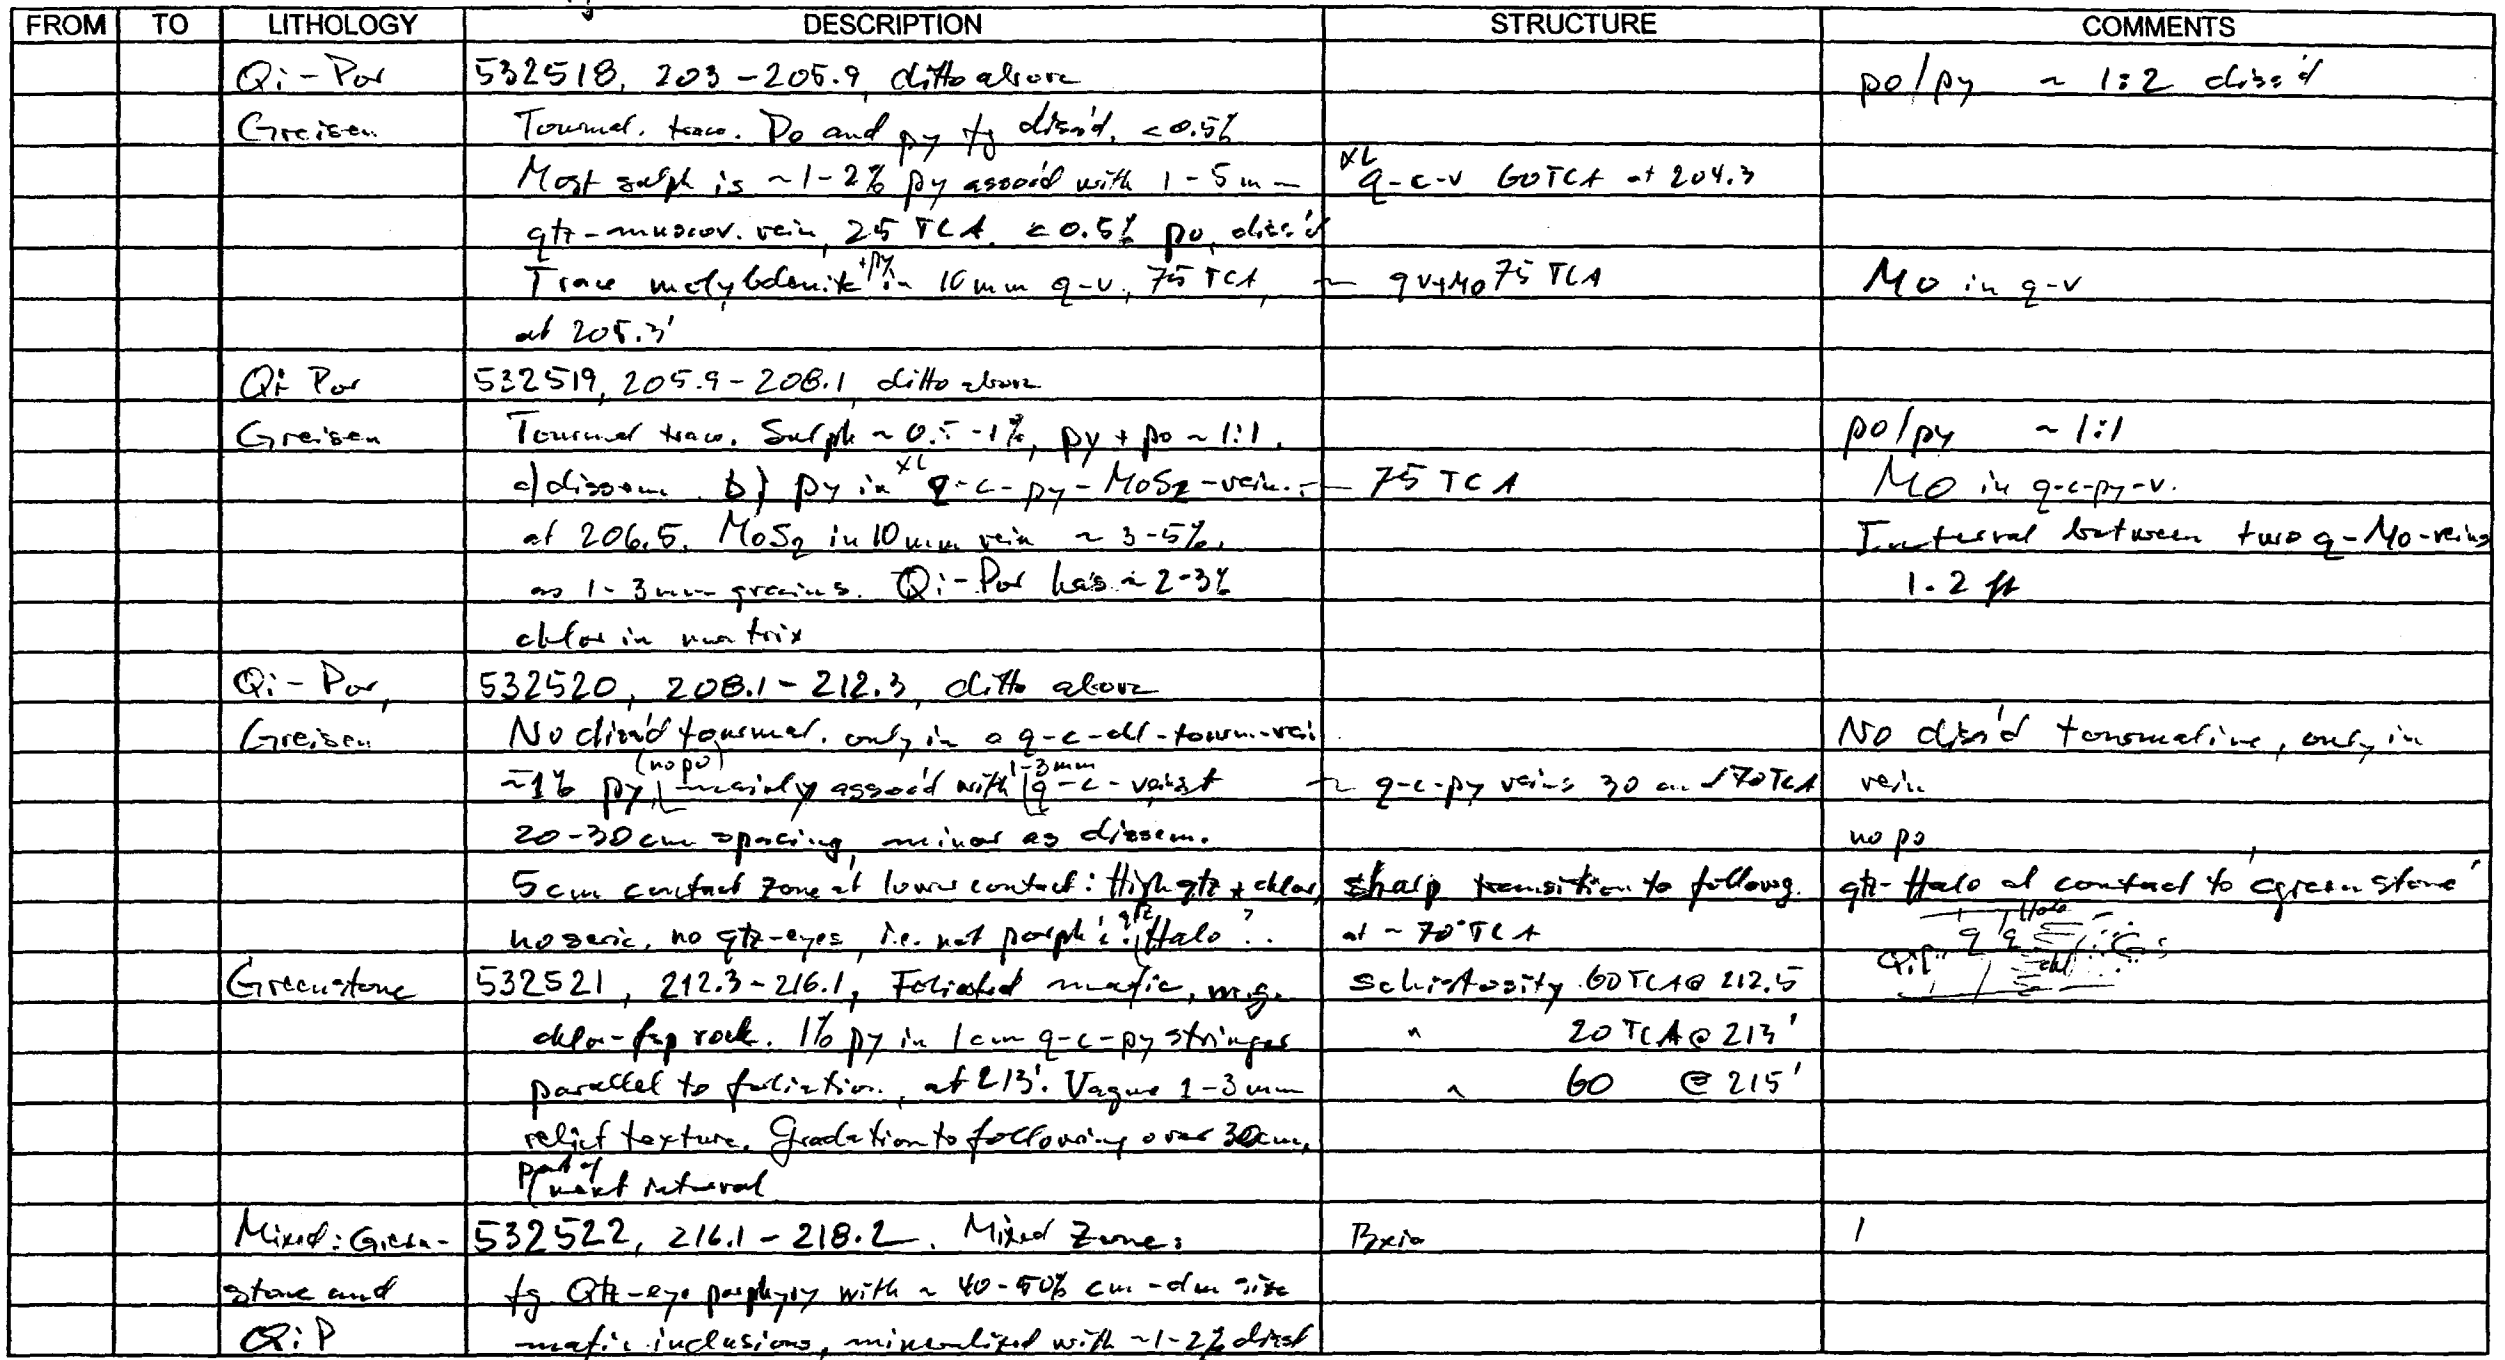 FROM TO LITHOLOGY DESCRIPTION STRUCTURE COMMENTS
Qi-Por 532518, 203-205.9, ditto above po/py ~ 1:2 diss'd
Greisen Tourmal. trace. Po and py fg diss'd, <0.5%
Most sulph is ~1-2% py assoc'd with 1-5mm XL q-c-v 60TCA at 204.3
qtz-muscov. vein, 25 TCA. <0.5% po, diss'd
Trace molybdenite +py in 10mm q-v., 75 TCA, ~ qv+Mo 75 TCA MO in q-v
at 205.3'
Qi Por 532519, 205.9-208.1 ditto above
Greisen Tourmal trace. Sulph ~ 0.5-1%, py + po ~ 1:1. po/py ~ 1:1
a) dissem. b) py in XL q-c-py-MoS2-vein. 75 TCA MO in q-c-py-v.
at 206.5. MoS2 in 10mm vein ~ 3-5%, Interval between two q-Mo-veins
as 1-3mm grains. Qi-Por has ~ 2-3% 1.2 ft
chlor in matrix
Qi-Por, 532520, 208.1-212.3, ditto above
Greisen No diss'd tourmal. only in a q-c-chl-tourm-vein No diss'd tourmaline, only in
~1% py (no po), mainly assoc'd with 1-3mm q-c-veins at ~ q-c-py veins 30 and 70TCA vein
20-30cm spacing, minor as dissem. no po
5cm contact zone at lower contact: High qtz + chlor, sharp transition to followg. qtz-Halo at contact to greenstone
no seric. no qtz-eyes, i.e. not porph: qtz Halo? at ~ 70° TCA Halo
q q
QiP chl
Greenstone 532521, 212.3-216.1, Foliated mafic, m.g. Schistosity 60TCA@ 212.5
chlor-fsp rock. 1% py in 1cm q-c-py stringer " 20 TCA @ 213'
parallel to foliation, at 213'. Vague 1-3mm " 60 @ 215'
relict texture. Gradation to following over 30cm,
part of next interval
Mixed: Green- 532522, 216.1-218.2. Mixed Zone: Bxia
stone and fg Qtz-eye porphyry with ~ 40-50% cm-dm size
QiP mafic inclusions, mineralized with ~1-2% diss'd